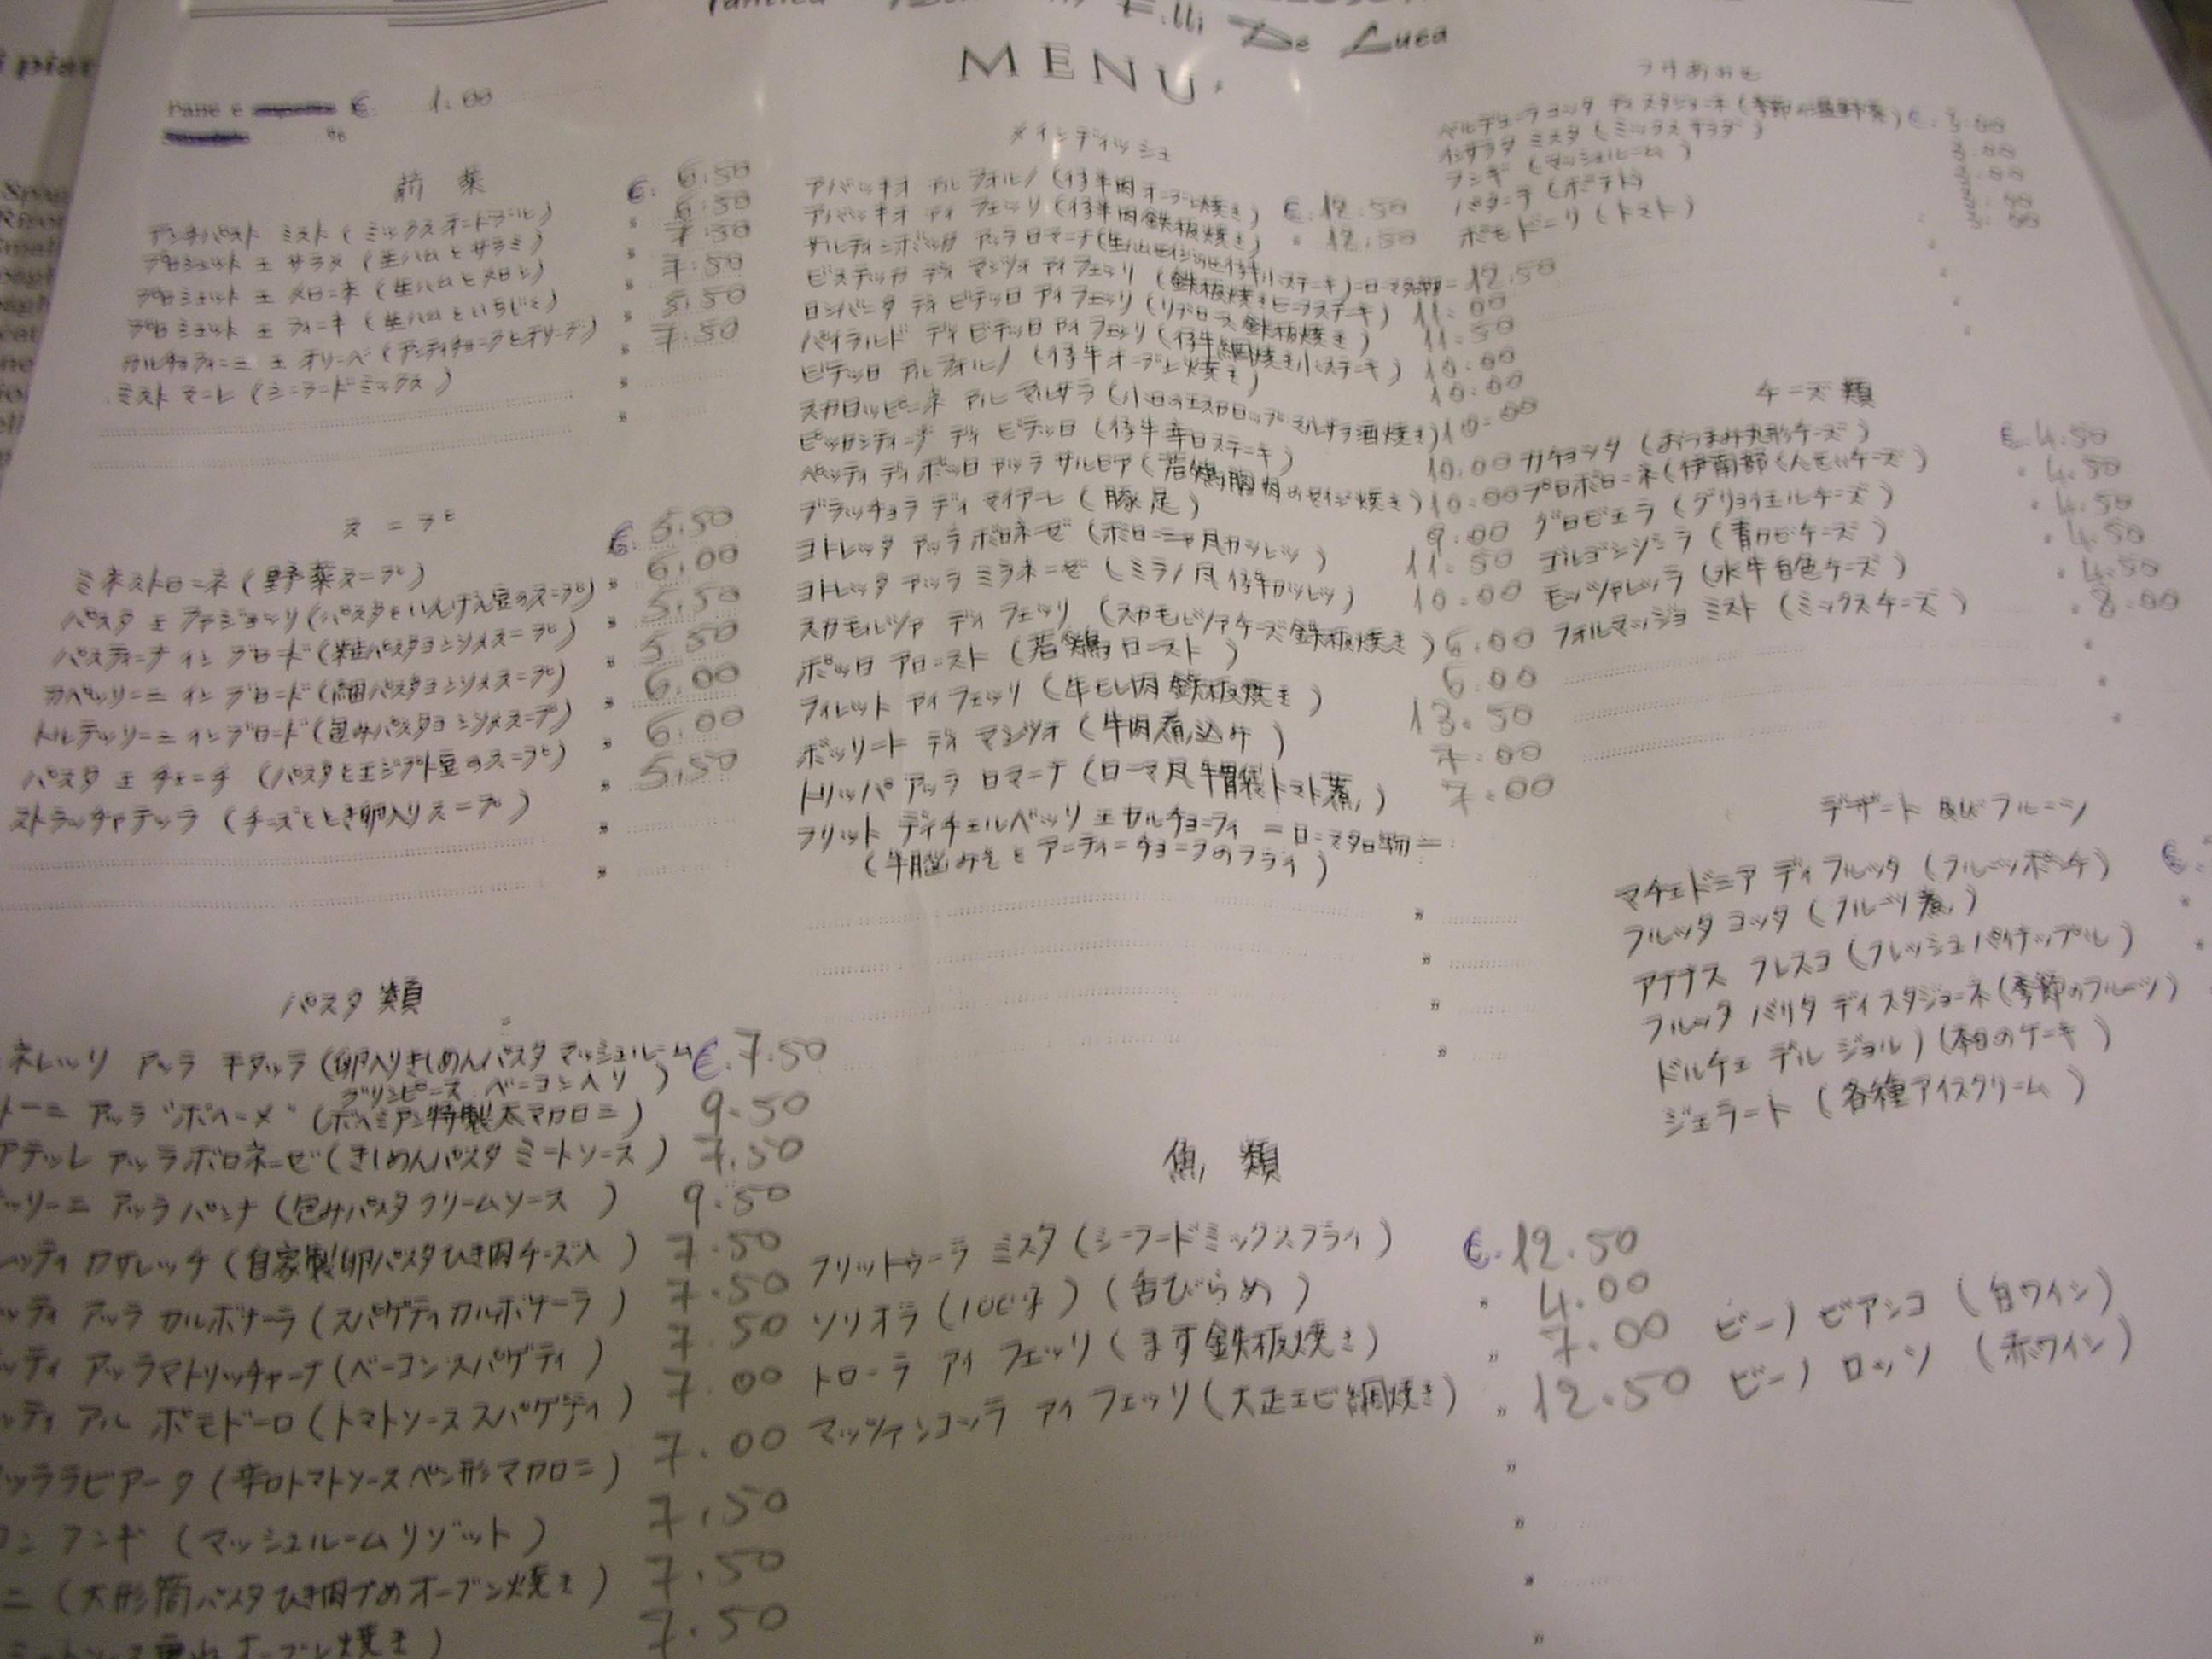 F.lli De Luca
MENU'
Pane e € 1.00
前菜
アンチパスト ミスト (ミックスオードブル) € 6.50
プロシュット エ サラメ (生ハムとサラミ) " 6.50
プロシュット エ メローネ (生ハムとメロン) " 7.50
プロシュット エ フィーキ (生ハムといちじく) " 7.50
カルチョフィーニ エ オリーベ (アーティチョークとオリーブ) " 5.50
ミスト マーレ (シーフードミックス) " 7.50
スープ
ミネストローネ (野菜スープ) € 5.50
パスタ エ ファジョーリ (パスタといんげん豆のスープ) " 6.00
パスティーナ イン ブロード (粒パスタコンソメスープ) " 5.50
カペッリーニ イン ブロード (細パスタコンソメスープ) " 5.50
トルテッリーニ イン ブロード (包みパスタコンソメスープ) " 6.00
パスタ エ チェーチ (パスタとエジプト豆のスープ) " 6.00
ストラッチャテッラ (チーズととき卵入りスープ) " 5.50
パスタ類
ネレッリ アッラ キタッラ (卵入りきしめんパスタ マッシュルーム € 7.50
グリンピース ベーコン入り)
トーニ アッラ "ボヘーメ" (ボヘミアン特製太マカロニ) 9.50
アテッレ アッラ ボロネーゼ (きしめんパスタ ミートソース) 7.50
ッリーニ アッラ パンナ (包みパスタクリームソース) 9.50
ッティ カサレッチ (自家製卵パスタひき肉チーズ入) 7.50
ッティ アッラ カルボナーラ (スパゲティカルボナーラ) 7.50
ッティ アッラマトリッチャーナ (ベーコンスパゲティ) 7.50
ッティ アル ポモドーロ (トマトソーススパゲティ) 7.00
ッラビアータ (辛口トマトソースペン形マカロニ) 7.00
コン フンギ (マッシュルームリゾット) 7.50
ニ (大形筒パスタひき肉づめオーブン焼き) 7.50
オーブン焼き) 7.50
メインディッシュ
アバッキオ アル フォルノ (仔羊肉オーブン焼き) € 12.50
アバッキオ アイ フェッリ (仔羊肉鉄板焼き) " 12.50
サルティンボッカ アッラ ロマーナ (生ハムセイジのせ仔牛小ステーキ)=ローマ名物= 12.50
ビステッカ ディ マンツォ アイ フェッリ (鉄板焼きビーフステーキ) 11.00
ロンバータ ディ ビテッロ アイ フェッリ (リブロース鉄板焼き) 11.50
パイラルド ディ ビテッロ アイ フェッリ (仔牛網焼き小ステーキ) 10.00
ビテッロ アル フォルノ (仔牛オーブン焼き) 10.00
スカロッピーネ アル マルサラ (小口のエスカロップマルサラ酒焼き) 10.00
ピッカンティーナ ディ ビテッロ (仔牛辛口ステーキ) 10.00
ペッティ ディ ポッロ アッラ サルビア (若鶏胸肉のセイジ焼き) 10.00
ブラッチョラ ディ マイアーレ (豚足) 9.00
コトレッタ アッラ ボロネーゼ (ボローニャ風カツレツ) 11.50
コトレッタ アッラ ミラネーゼ (ミラノ風仔牛カツレツ) 10.00
スカモルツァ アイ フェッリ (スカモルツァチーズ鉄板焼き) 6.00
ポッロ アロースト (若鶏ロースト) 6.00
フィレット アイ フェッリ (牛ヒレ肉鉄板焼き) 13.50
ボッリート ディ マンツォ (牛肉煮込み) 7.00
トリッパ アッラ ロマーナ (ローマ風牛胃袋トマト煮) 7.00
フリット ディ チェルベッリ エ カルチョーフィ =ローマ名物=
(牛脳みそとアーティーチョークのフライ)
魚類
フリットゥーラ ミスタ (シーフードミックスフライ) € 12.50
ソリオラ (100g) (舌びらめ) " 4.00
トローラ アイ フェッリ (ます鉄板焼き) " 7.00
マッツァンコッラ アイ フェッリ (大正エビ網焼き) " 12.50
つけあわせ
ベルデューラ コッタ ディ スタジョーネ (季節の温野菜) € 3.00
インサラタ ミスタ (ミックスサラダ)
フンギ (マッシュルーム)
パターテ (ポテト)
ポモドーリ (トマト)
チーズ類
カチョッタ (おつまみ丸形チーズ) € 4.50
プロボローネ (伊南部くんせいチーズ) " 4.50
グロビエラ (グリュイエルチーズ) " 4.50
ゴルゴンゾーラ (青カビチーズ) " 4.50
モッツァレッラ (水牛白色チーズ) " 4.50
フォルマッジョ ミスト (ミックスチーズ) " 8.00
デザート 及び フルーツ
マチェドニア ディ フルッタ (フルーツポンチ) €
フルッタ コッタ (フルーツ煮)
アナナス フレスコ (フレッシュパイナップル)
フルッタ バリタ ディ スタジョーネ (季節のフルーツ)
ドルチェ デル ジョルノ (本日のケーキ)
ジェラート (各種アイスクリーム)
ビーノ ビアンコ (白ワイン)
ビーノ ロッソ (赤ワイン)